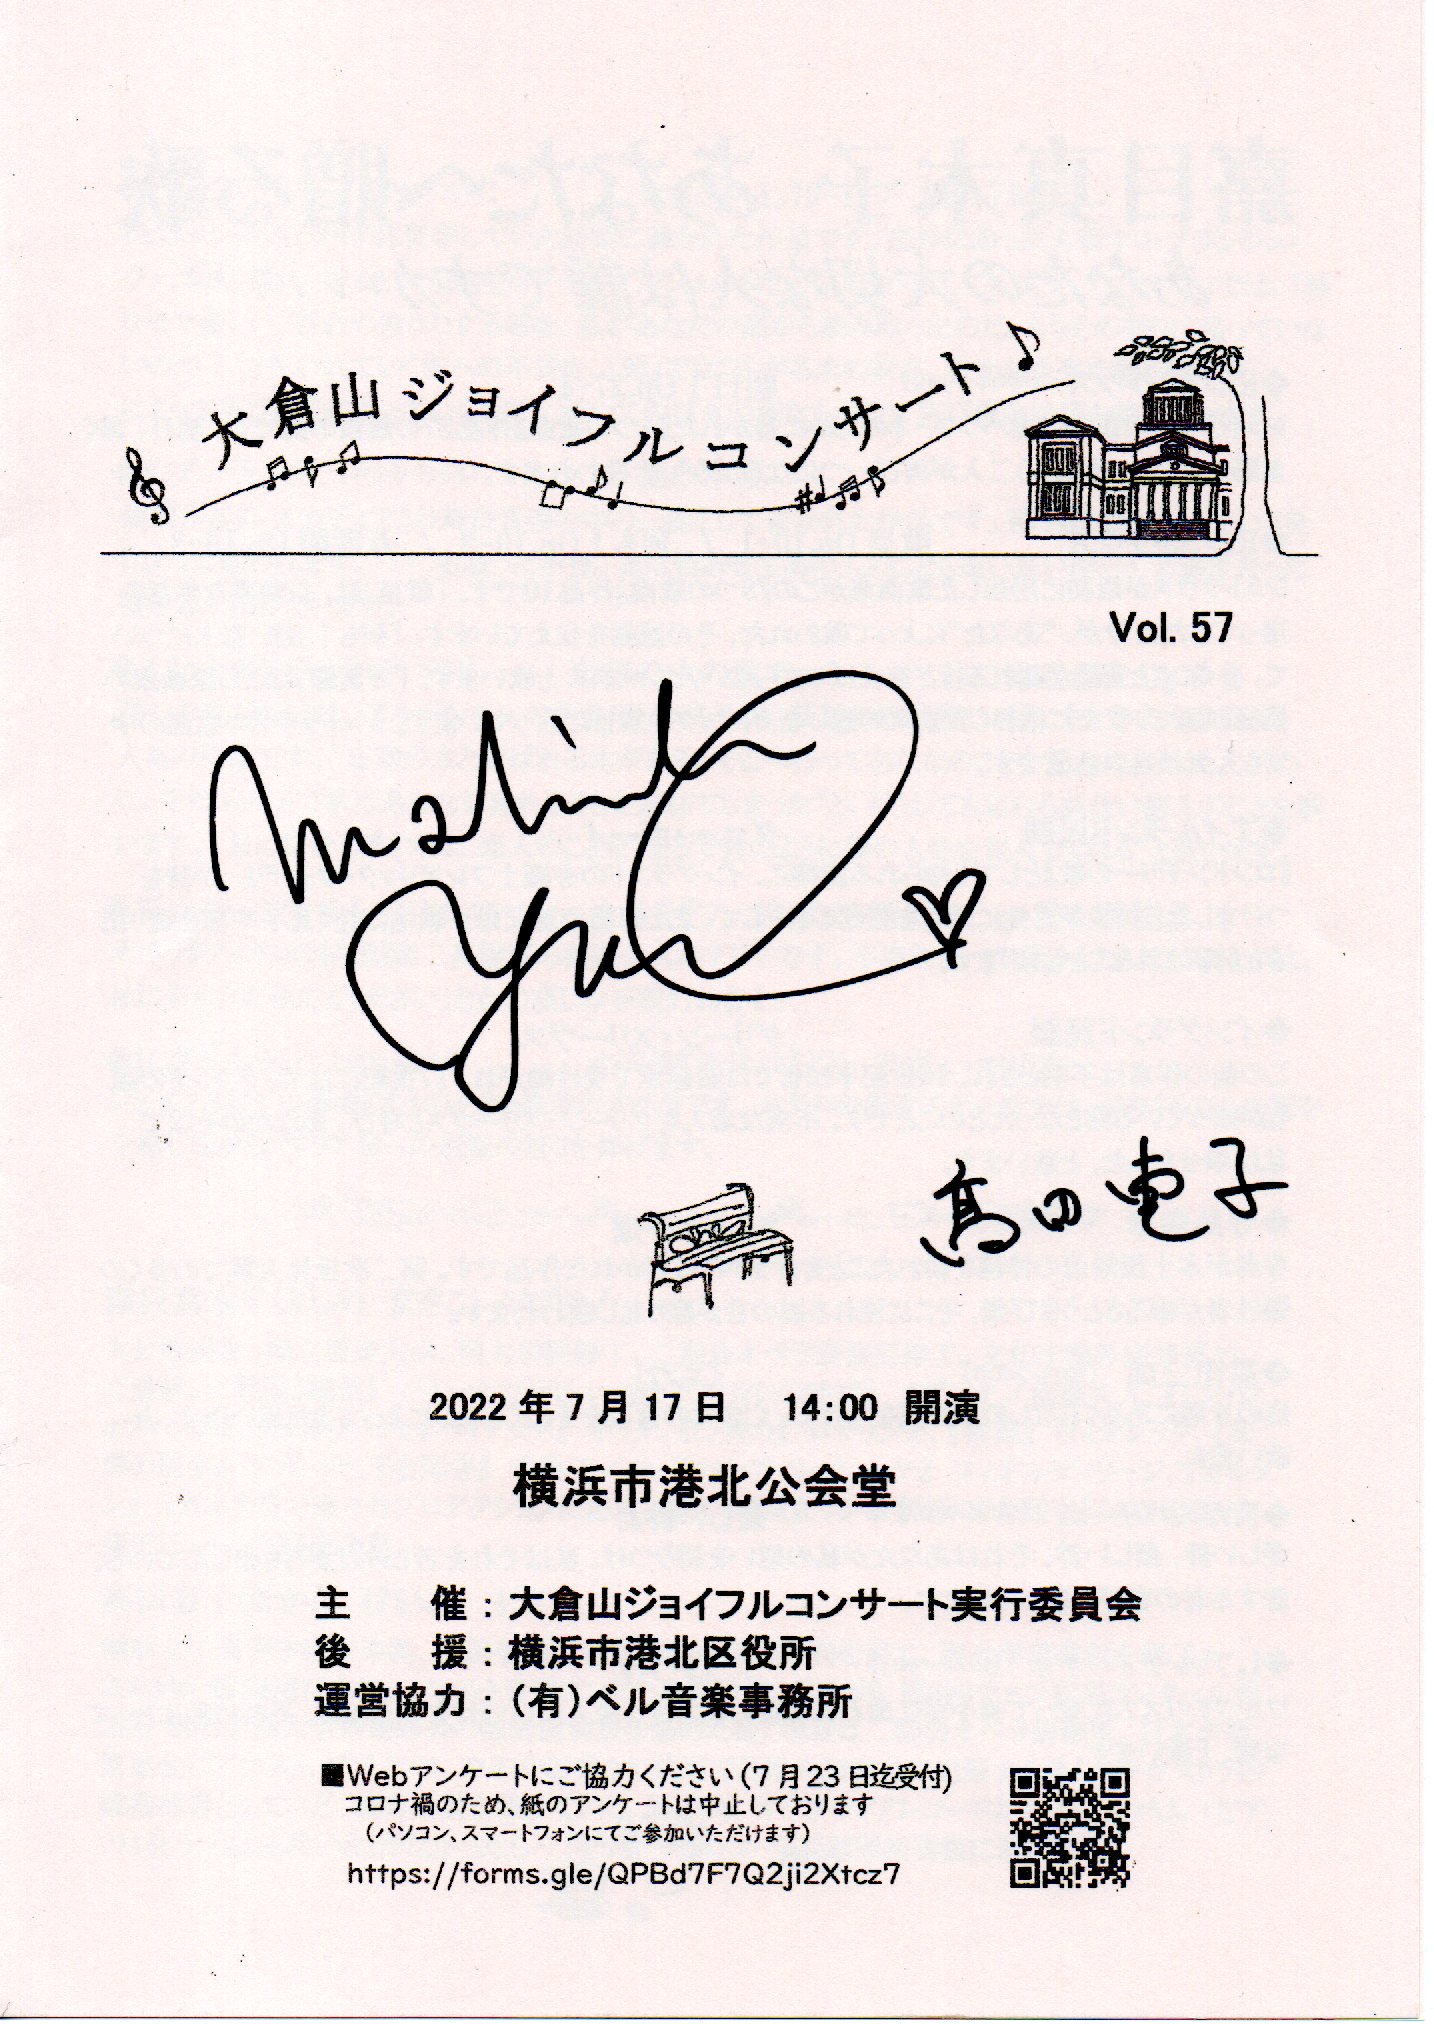 大倉山ジョイフルコンサート
Vol. 57
髙田恵子
2022年7月17日 14:00 開演
横浜市港北公会堂
主 催：大倉山ジョイフルコンサート実行委員会
後 援：横浜市港北区役所
運営協力：（有）ベル音楽事務所
■Webアンケートにご協力ください（7月23日迄受付）
コロナ禍のため、紙のアンケートは中止しております
（パソコン、スマートフォンにてご参加いただけます）
https://forms.gle/QPBd7F7Q2ji2Xtcz7